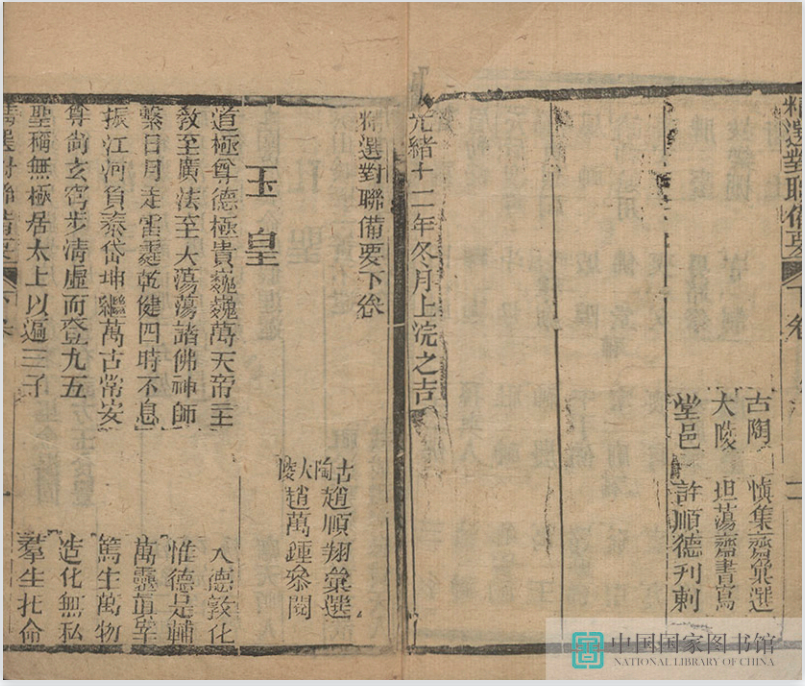 精選對聯備要 下卷
古陶 慎集齋彙選
大陵 坦蕩齋書寫
堂邑 許順德刊刺
光緒十二年冬月上浣之吉
精選對聯備要下卷
古陶趙順翔彙選
大陵趙萬鍾參閱
玉皇
道極尊德極貴巍巍萬天帝主
敎至廣法至大蕩蕩諸佛神師
繫日月走雷霆乾健四時不息
振江河負泰岱坤繼萬古常安
尊尚玄穹步清虛而登九五
聖稱無極居太上以邁三子
大德敦化
惟德是輔
萬靈
篤生萬物
造化無私
羣生托命
精選對聯備要 下卷 一
中国国家图书馆
NATIONAL LIBRARY OF CHINA